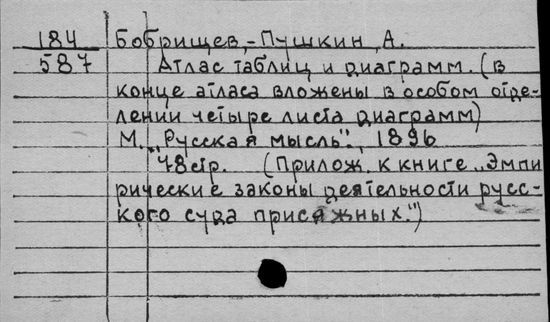 184 Бобрищев,-Пушкин, А.
587 Атлас таблиц и диаграмм. (в
конце атласа вложены в особом отде-
лении четыре листа диаграмм)
М. „Русская мысль"., 1896
48стр. (Прилож. к книге „Эмпи
рические законы деятельности русс-
кого суда присяжных.")